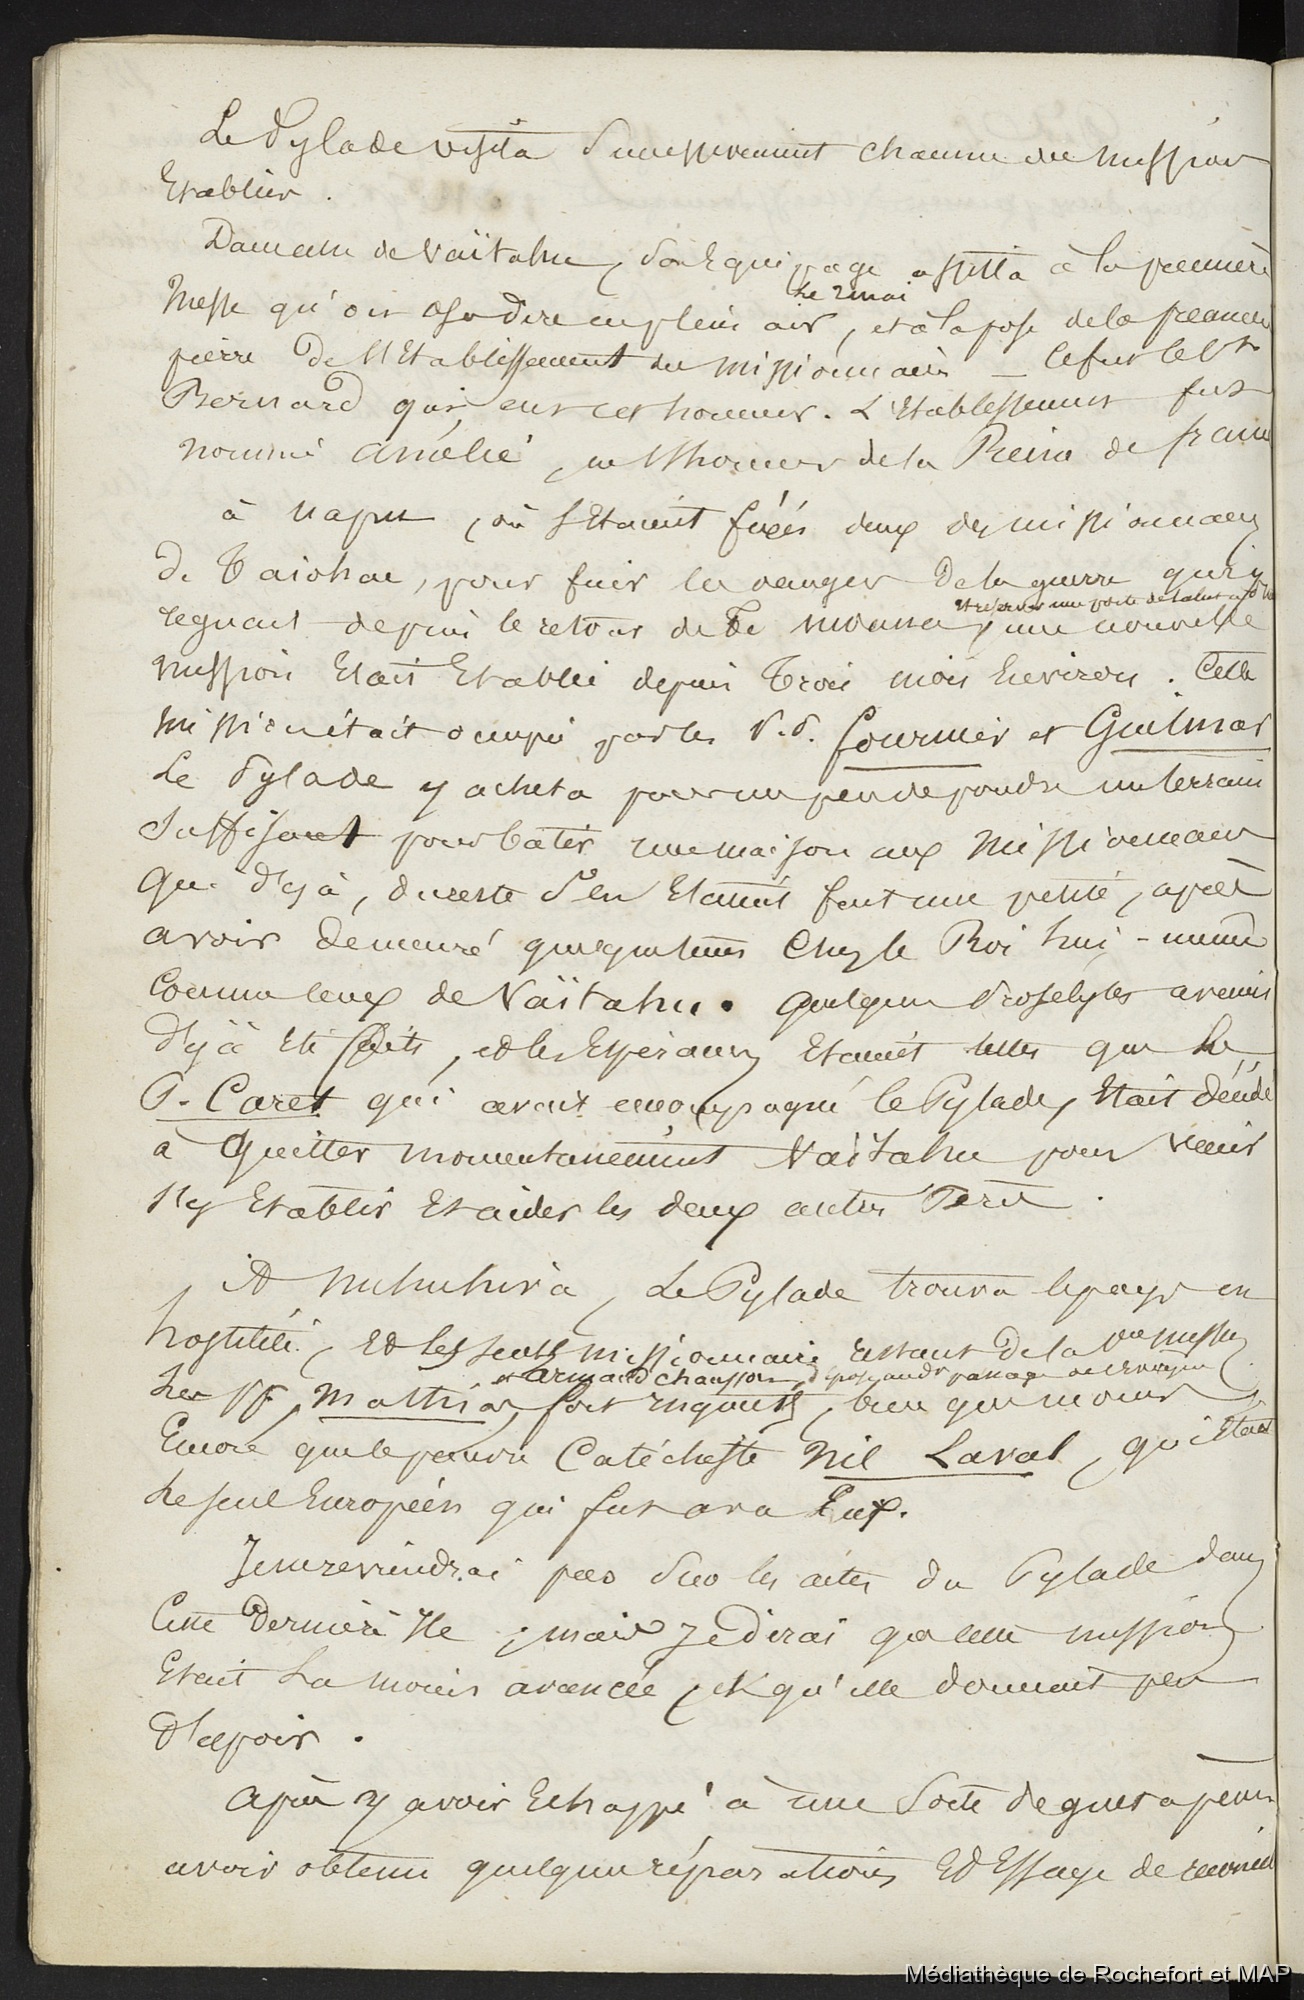 Le Pylade visita Successivement chacune des missions
Etablies.
Dans celle de Vaïtahu, Son Equipage assista à la première
le 2 mai
Messe qu'on osa dire en plein air, et à la pose de la première
pierre De l'Etablissement des missionnaires _ Ce fut le Ct
Bernard qui eut cet honneur. L'Etablissement fut
nommé Amélie, en l'honneur de la Reine de france
à uapu, où S'Etaient fixés deux des missionnaires
De Taiohae, pour fuir les dangers De la guerre qui y
et réserver une porte de salut
regnait depuis le retour de Te Moana, une nouvelle
mission Etait Etablie depuis Trois mois Environ. Cette
mission était occupée par les P.P. fournier et Guilmar
Le Pylade y acheta pour un peu de poudre un terrain
Suffisant pour batir une maison aux Missionnaires
Qui déjà, du reste S'en Etaient fait une petite, après
avoir demeuré quelque tems Chez le Roi lui-même
Comme ceux de Vaïtahu. quelques Proselytes avaient
Déjà Eté faits, et les Espérances Etaient telles que le
P. Caret qui avait accompagné le Pylade, Etait décidé
à Quitter momentanément Vaïtahu pour venir
s'y Etablir Et aider les deux autres Peres.
A Nuhuhiva, Le Pylade trouva le pays en
hostilité, Et les seuls missionnaires restant De la mission
et Armand Chausson, passage
Les PP. Mathias, fort inquiets, bien que moins
Encore que le pauvre Catéchiste Nil Laval, qui Etait
le seul Européen qui fut avec Eux.
Je ne reviendrai pas Sur les actes du Pylade dans
Cette Dernière Ile, mais Je dirai que cette mission
Etait La moins avancée, et qu'elle donnait peu
D'espoir.
Après y avoir Echappé à une Sorte de guet apens
avoir obtenu quelques réparations Et Essayé de reconcil
Médiathèque de Rochefort et MAP